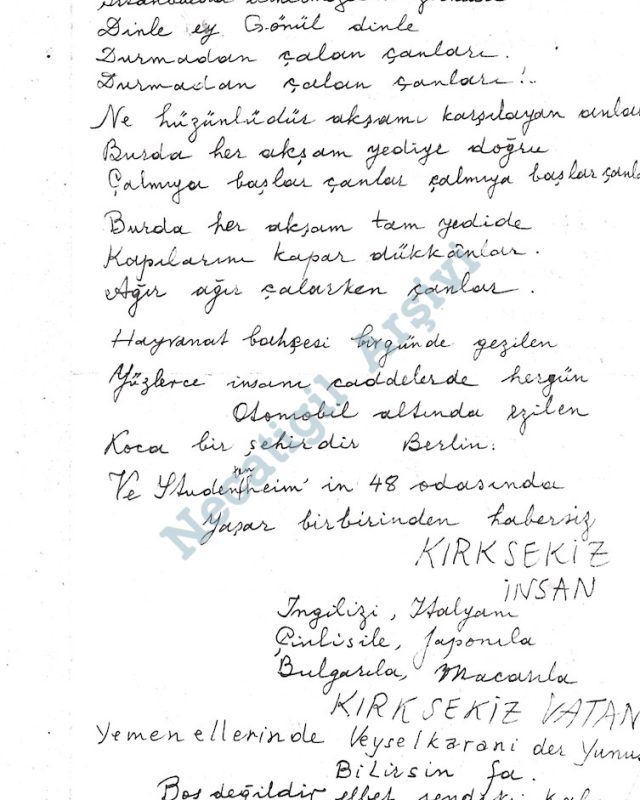 Dinle ey Gönül dinle
Durmadan çalan çanları.
Durmadan çalan çanları!..
Ne hüzünlüdür akşamı karşılayan anlar
Burda her akşam yediye doğru
Çalmıya başlar çanlar çalmıya başlar çanla
Burda her akşam tam yedide
Kapılarını kapar dükkânlar.
Ağır ağır çalarken çanlar.
Hayvanat bahçesi birgünde gezilen
Yüzlerce insanı caddelerde hergün
Otomobil altında ezilen
Koca bir şehirdir Berlin.
Ve Studentenheim'in 48 odasında
Yaşar birbirinden habersiz
KIRKSEKİZ
İNSAN
İngilizi, İtalyanı
Çinlisile, Japonıla
Bulgarıla, Macarıla
KIRKSEKİZ VATAN
Yemen ellerinde Veyselkarani der Yunus
Bilirsin ya.
Boş değildir elbet
Necatigil Arşivi